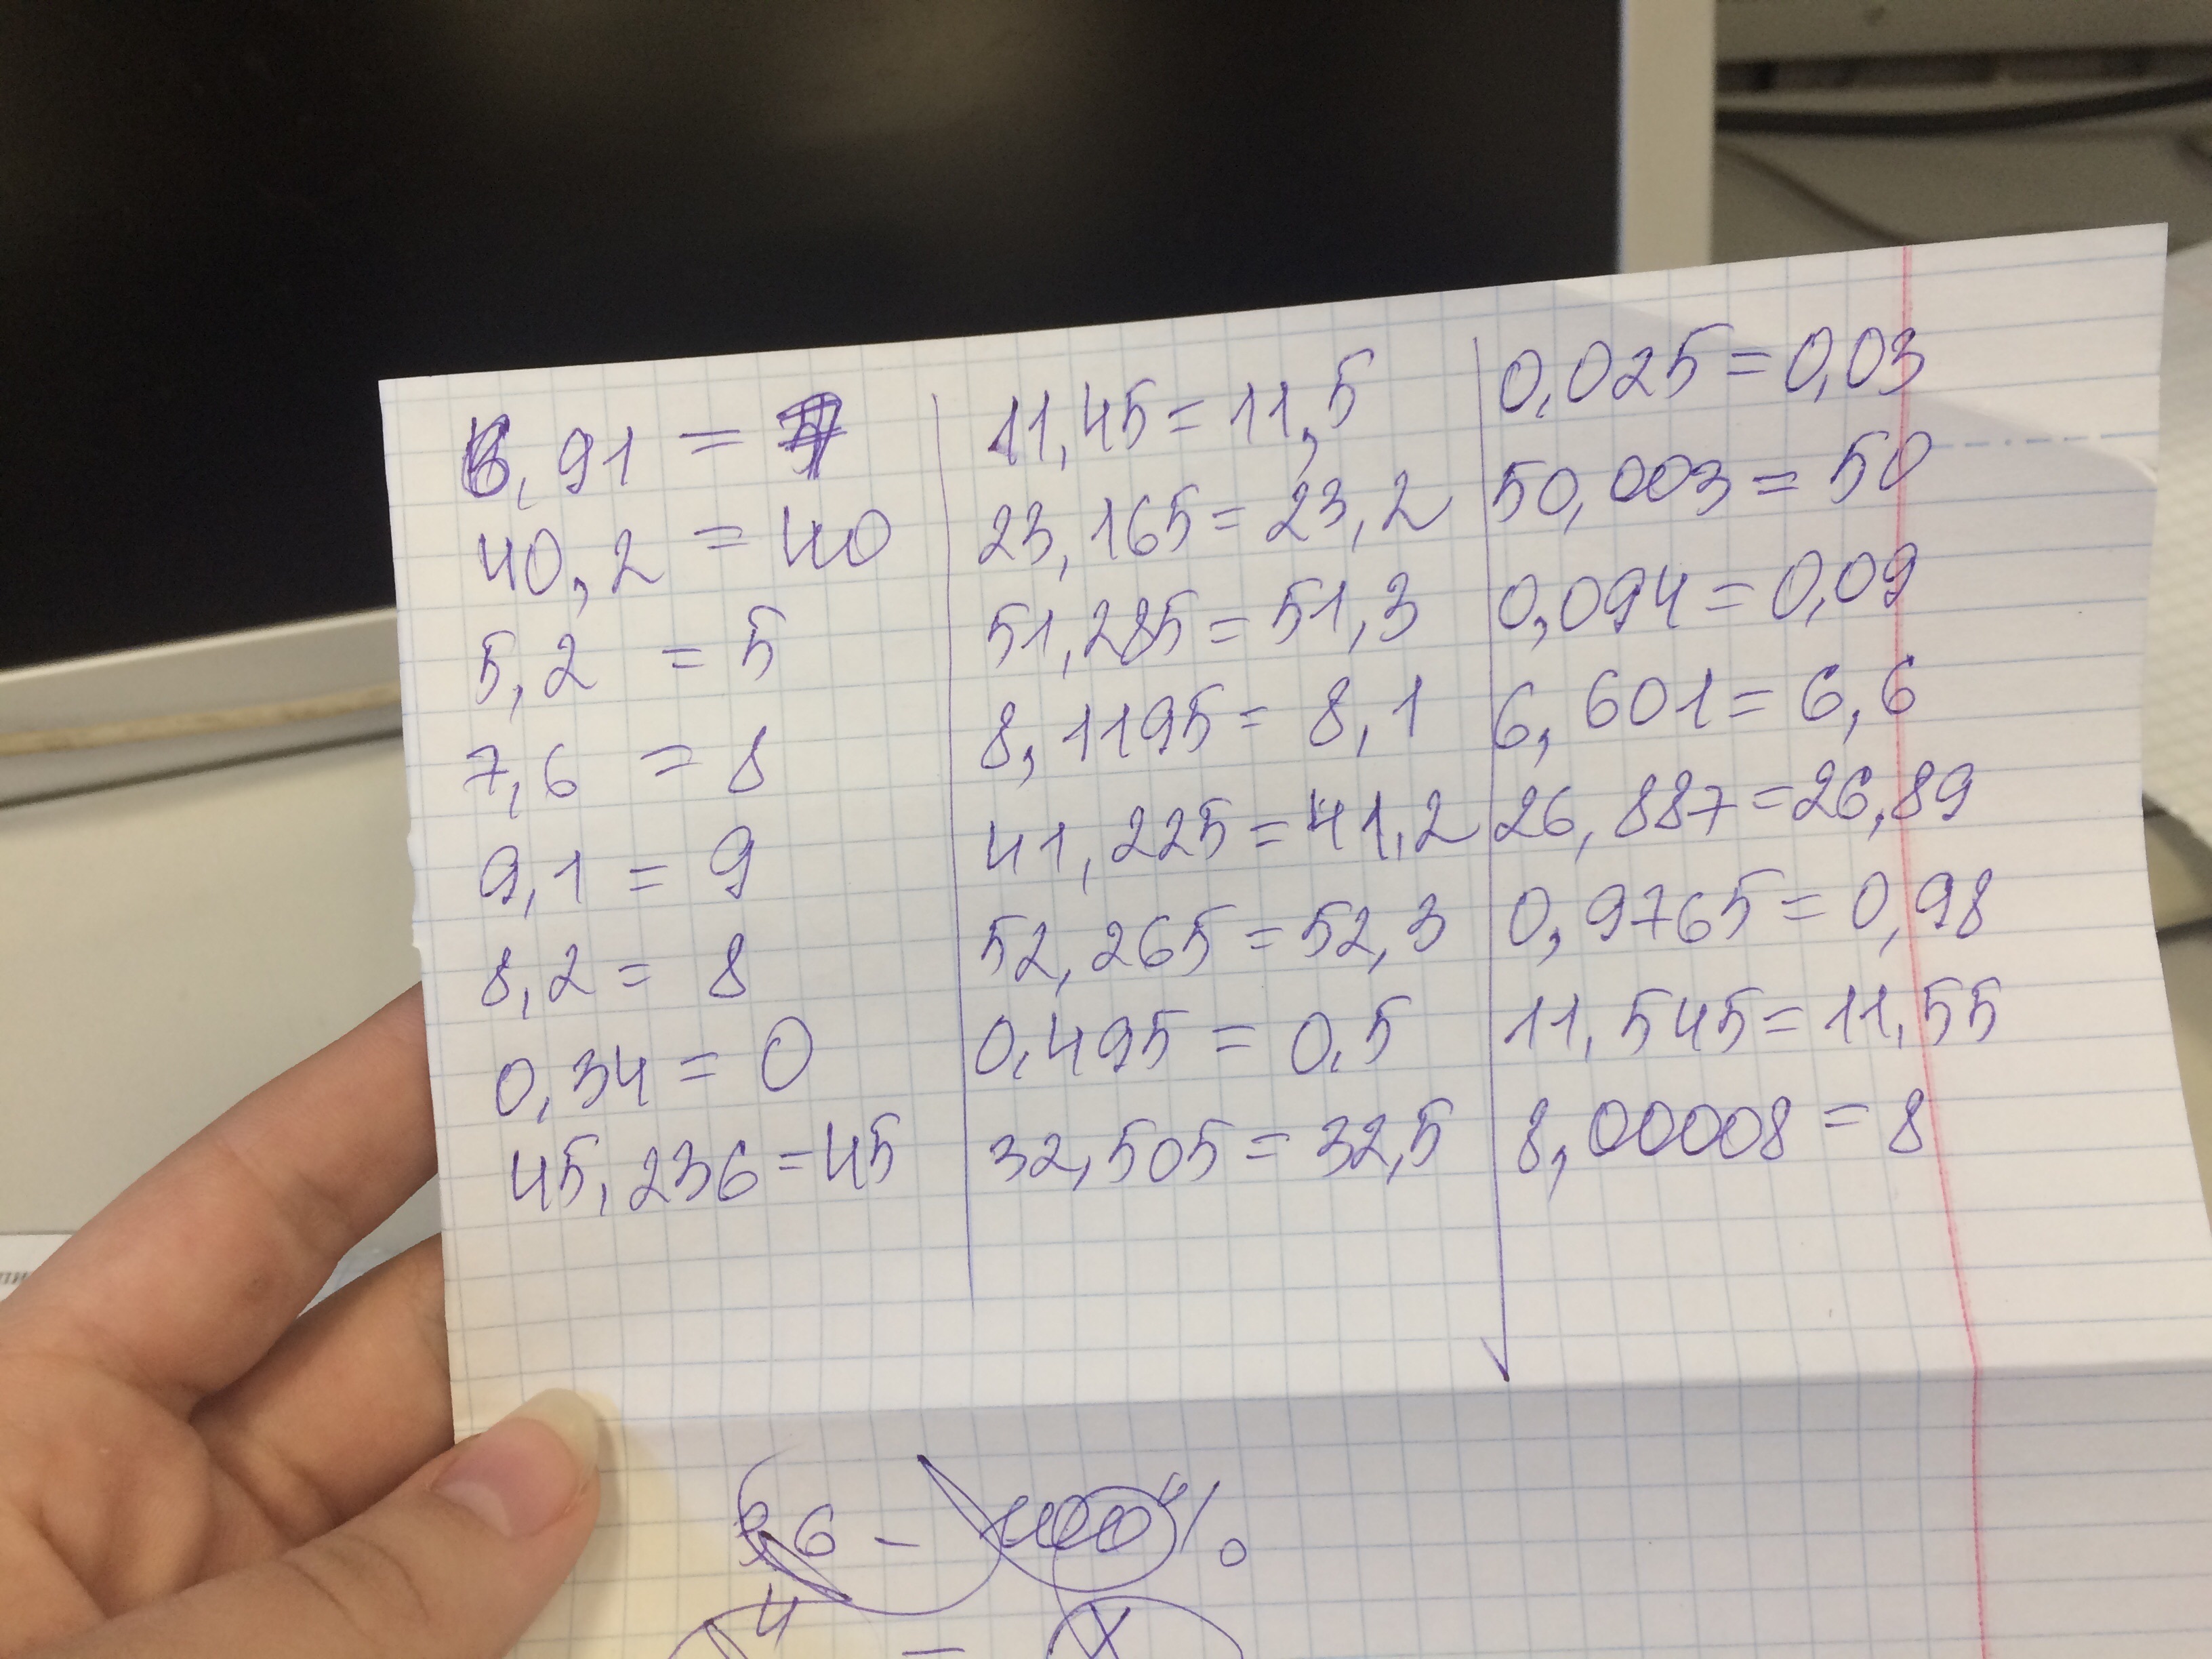 6,91 = 7
40,2 = 40
5,2 = 5
7,6 = 8
9,1 = 9
8,2 = 8
0,34 = 0
45,236 = 45
11,45 = 11,5
23,165 = 23,2
51,285 = 51,3
8,1195 = 8,1
41,225 = 41,2
52,265 = 52,3
0,495 = 0,5
32,505 = 32,5
0,025 = 0,03
50,003 = 50
0,094 = 0,09
6,601 = 6,6
26,887 = 26,89
0,9765 = 0,98
11,545 = 11,55
8,00008 = 8
6 - 100%
4 - X